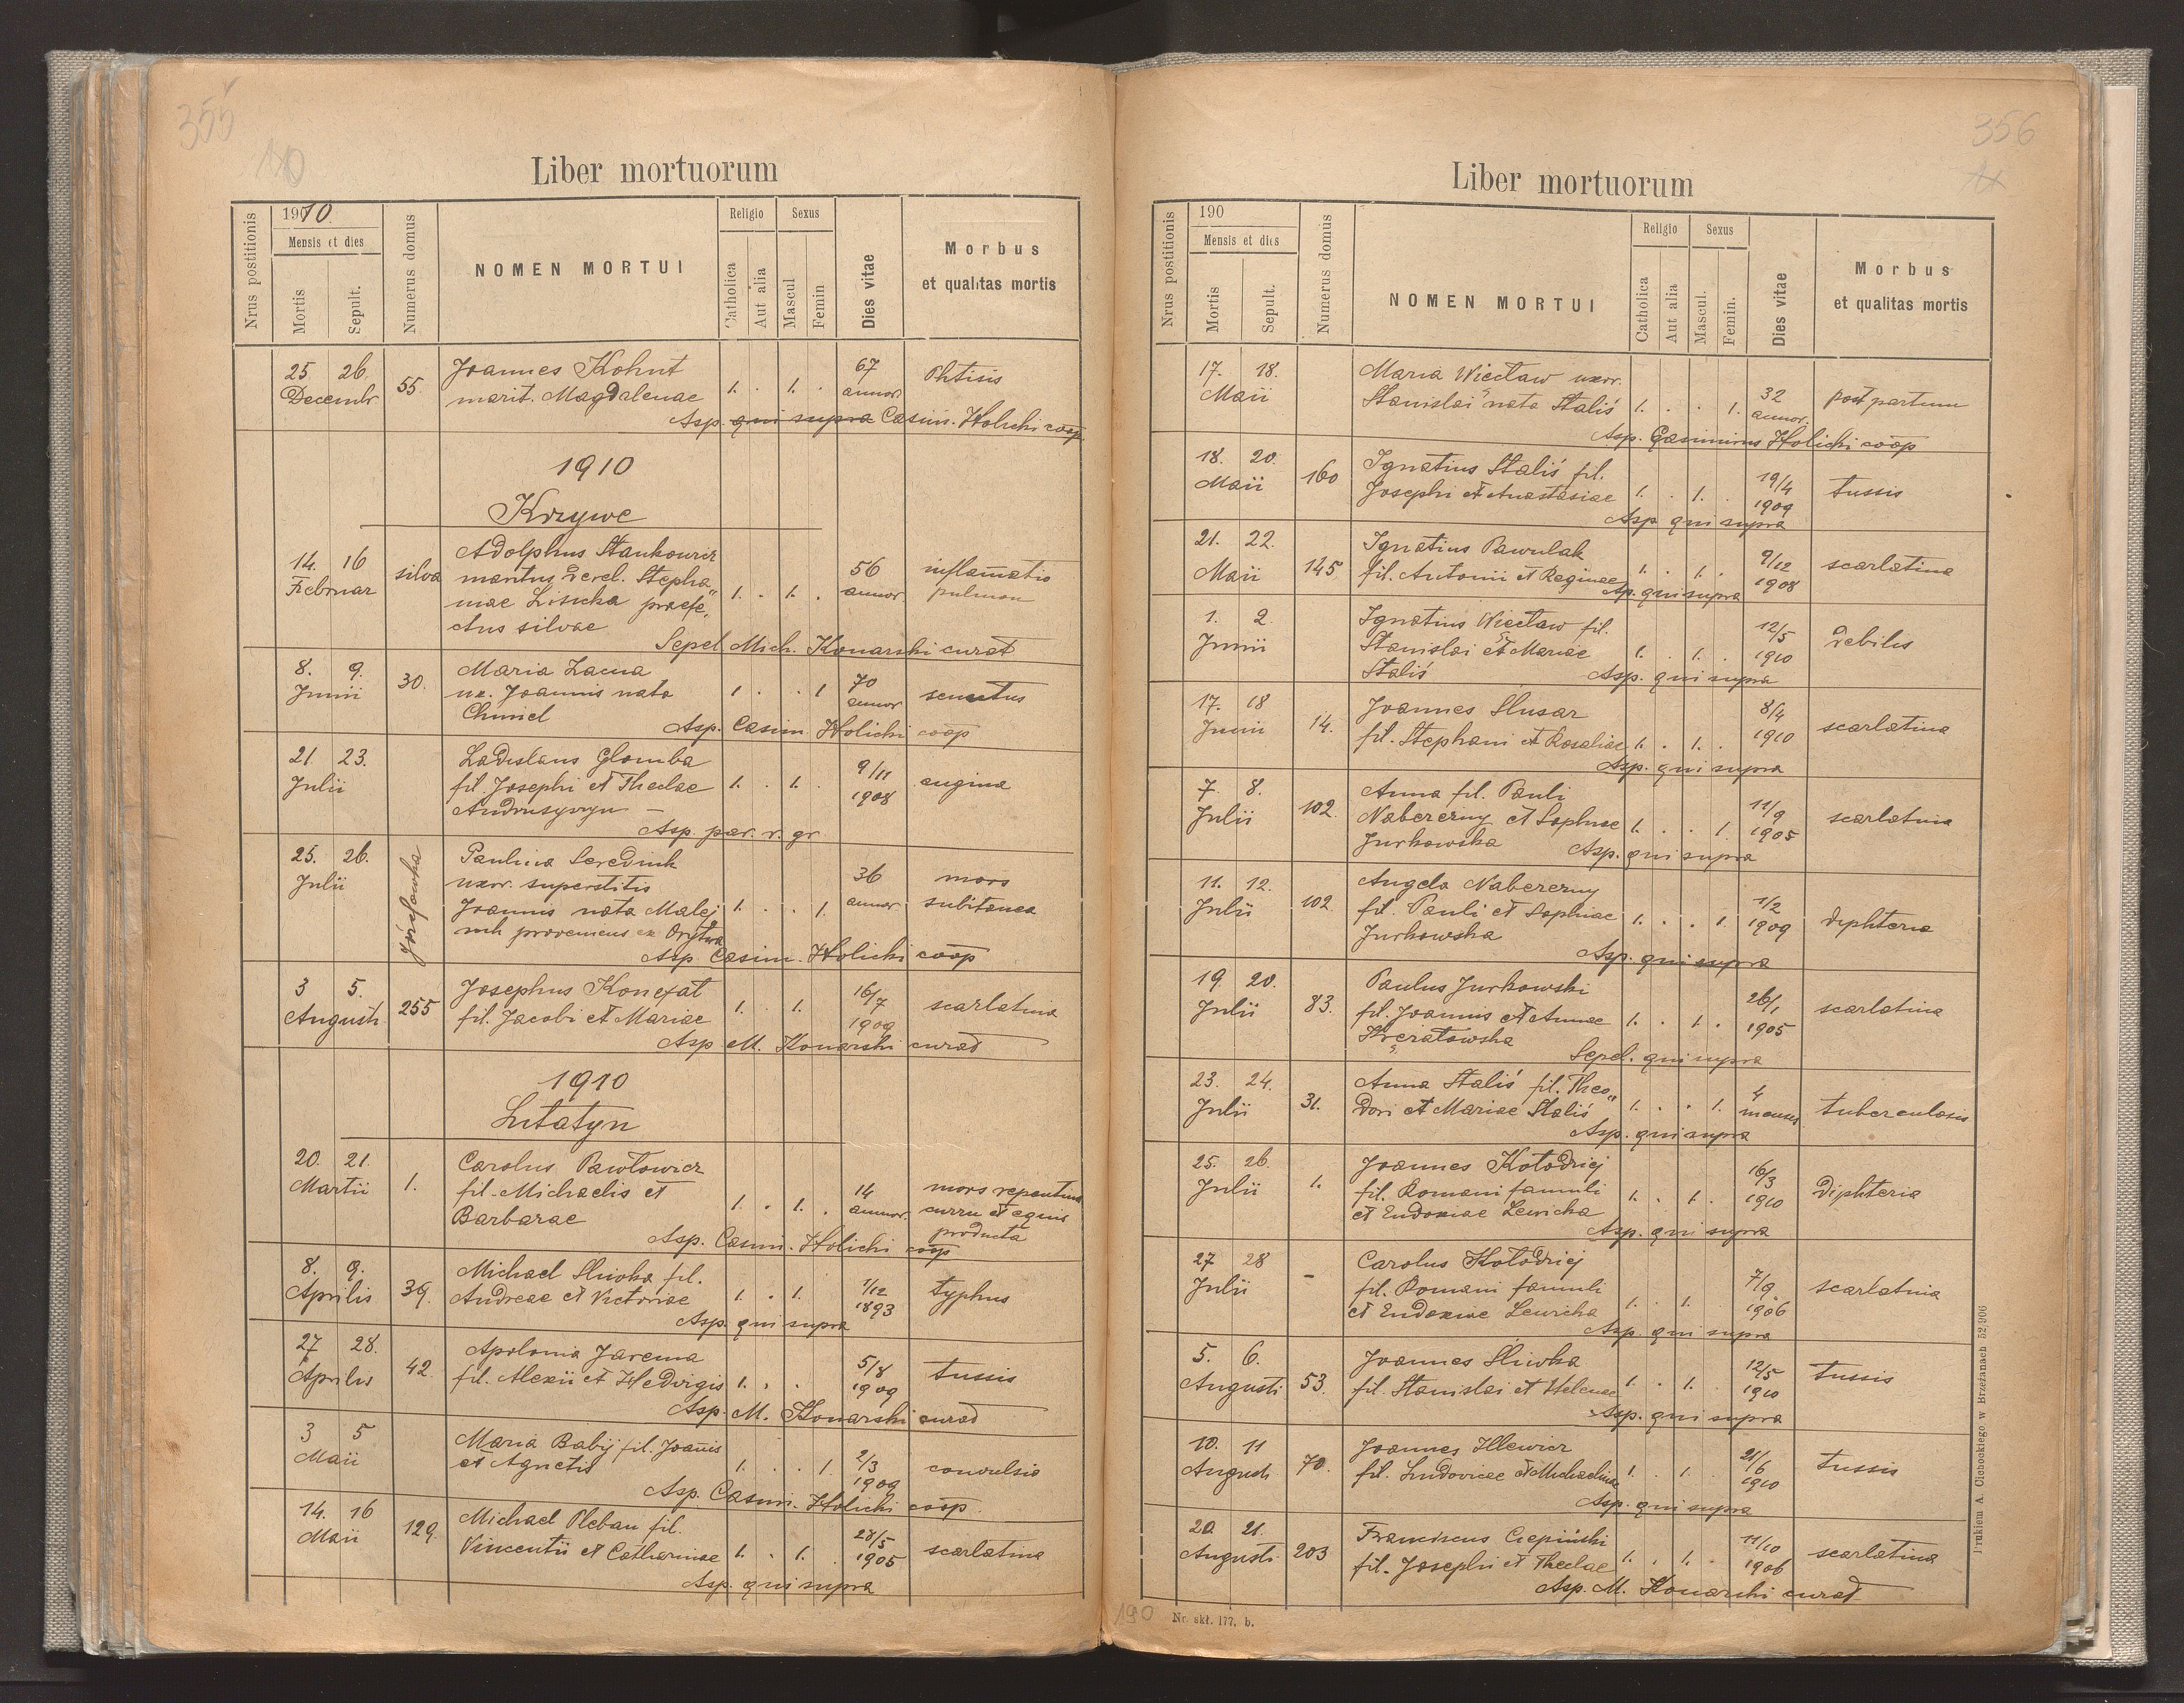 355
Liber mortuorum
Nrus postitionis
1910.
Mensis et dies
Mortis
Sepult.
Numerus domus
NOMEN MORTUI
Religio
Catholica
Aut alia
Sexus
Mascul
Femin
Dies vitae
Morbus
et qualitas mortis
25 26. 55. Joannes Kohut 67 Phtisis
Decembr. marit. Magdalenae 1. . 1. . annor.
Asp. qui supra Casim. Holicki coop.
1910
Krzywe
14. 16 silva Adolphus Stankowicz 56 inflamatio
Februar maritus derel. Stepha„ 1. . 1. . annor. pulmon
niae Lisicka praefe„
ctus silvae
Sepel Mich. Konarski curat
8. 9. 30. Maria Lacna 70 senectus
Junii ux. Joannis nata 1 . . 1 annor
Chmiel
Asp. Casim. Holicki coop
21. 23. Ladislaus Glomba 9/11 angina
Julii fil. Josephi et Theclae 1. . 1. . 1908
Asp. par. r. gr.
25. 26. Józefowka Paulina Serediuk 36 mors
Julii uxor. superstitis annor. subitanea
Joannis nata Malej 1. . . 1.
Asp. Casim. Holicki coop
3 5. 255 Josephus Konefat 16/7 scarlatina
Augusti fil. Jacobi et Mariae 1. . 1. 1909
Asp M. Konarski curat
1910
Litatyn
20. 21. 1. Carolus Pawłowicz 14 mors repentina
Martii fil. Michaelis et 1. . 1. . annor. curru et equis
Barbarae producta
Asp. Casim. Holicki coop
8. 9. 39. Michael Sliwka fil. 1/12 typhus
Aprilis Andreae et Victoriae 1. . 1. 1893
Asp. qui supra
27 28. 42. Apolonia Jarema 5/8 tussis
Aprilis fil. Alexii et Hedvigis 1. . . 1909
Asp. M. Konarski curat
3 5 Maria Babij fil. Joanis 2/3 convulsio
Maii et Agnetis 1. . . 1. 1909
Asp. Casim. Holicki coop.
14. 16 129. Michael Pleban fil. 28/5 scarlatina
Maii Vincentii et Catharinae 1. . 1. . 1905
Asp. qui supra
356
Liber mortuorum
Nrus postitionis
190
Mensis et dies
Mortis
Sepult.
Numerus domus
NOMEN MORTUI
Religio
Catholica
Aut alia
Sexus
Mascul.
Femin.
Dies vitae
Morbus
et qualitas mortis
17. 18. Maria Więcław uxor. 32 post partum
Maii Stanislai nata Staliś 1. . . 1. annor.
Asp. Casimirus Holicki coop
18. 20. 160 Ignatius Staliś fil. 19/4 tussis
Maii Josephi et Anastasiae 1. . 1. . 1909
Asp qui supra
21. 22. 145 Ignatius Pawulak 9/12 scarlatina
Maii fil. Antonii et Reginae 1. . 1. . 1908
Asp. qui supra
1. 2. Ignatius Więcław fil. 12/5 debilis
Junii Stanislai et Mariae 1. . 1. . 1910
Staliś Asp. qui supra
17. 18 14. Joannes Slusar 8/4 scarlatina
Junii fil. Stephani et Rosaliae 1. . 1. . 1910
Asp. qui supra
7. 8. 102. Anna fil. Pauli 11/9 scarlatina
Julii Naberezny et Sophiae 1. . . 1. 1905
Jurkowska Asp. qui supra
11. 12. 102. Angela Naberezny 1/2 diphteria
Julii fil. Pauli et Sophiae 1. . . 1. 1909
Jurkowska Asp. qui supra
19. 20. 83. Paulus Jurkowski 26/1 scarlatina
Julii fil. Joannis et Annae 1. . 1. . 1905
Sepel. qui supra
23. 24. 31. Anna Staliś fil. Theo„ 4 tuberculosis
Julii dori et Mariae Staliś 1. . . 1. menses
Asp. qui supra
25. 26. 1. Joannes Kołodziej 16/3 diphteria
Julii fil. Romani famuli 1. . 1. 1910
et Eudoxiae Lewicka
Asp. qui supra
27 28 - Carolus Kołodziej 7/9 scarlatina
Julii fil. Romani famuli 1906
et Eudoxiae Lewicka 1. . 1.
Asp. qui supra
5. 6. 53. Joannes Śliwka 12/5 tussis
Augusti fil. Stanislai et Helenae 1. . 1. 1910
Asp. qui supra
10. 11 70. Joannes Illewicz 21/6 tussis
Augusti fil. Ludovicae et Michaelinae 1. . 1. 1910
Asp. qui supra
20. 21. 203 Franciscus Ciepiński 11/10 scarlatina
Augusti fil. Josephi et Theclae 1. . 1. . 1906
Asp. M. Konarski curat
190
Nr. skł. 177, b.
Drukiem A. Cichockiego w Brzeżanach 52,906